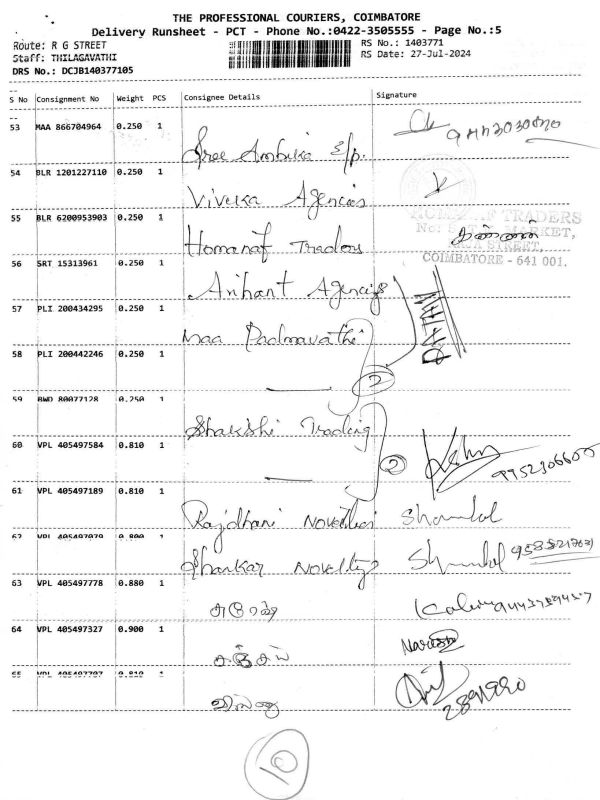 THE PROFESSIONAL COURIERS, COIMBATORE
Delivery Runsheet - PCT - Phone No.:0422-3505555 - Page No.:5
Route: R G STREET
RS No.: 1403771
Staff: THILAGAVATHI
RS Date: 27-Jul-2024
DRS No.: DCJB140377105
S No Consignment No Weight PCS Consignee Details Signature
53 MAA 866704964 0.250 1
Sree Ambika
54 BLR 1201227110 0.250 1
Viveka Agencies
55 BLR 6200953903 0.250 1
TRADERS
MARKET,
STREET,
COIMBATORE - 641 001.
Homanaf Traders
56 SRT 15313961 0.250 1
Arihant Agencys
57 PLI 200434295 0.250 1
Maa Padmavathi
58 PLI 200442246 0.250 1
2
59 BWD 80077128 0.250 1
Shakshi Trading
60 VPL 405497584 0.810 1
2
9952306600
61 VPL 405497189 0.810 1
Rajdhani Novelties
62 VPL 405497079 0.800 1
Shankar Noveltys
63 VPL 405497778 0.880 1
சுரேஷ்
64 VPL 405497327 0.900 1
சஞ்சய்
Naresh
65 VPL 405497707 0.810 1
10